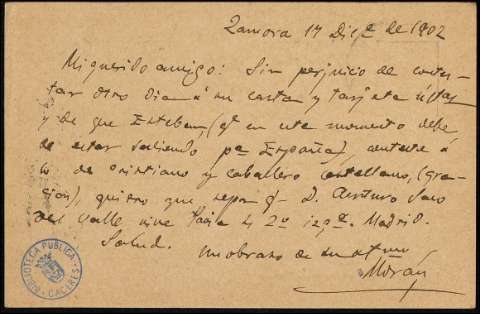 Zamora 17 Dic.e de 1902
Mi querido amigo: Sin perjuicio de contes-
tar otro dia á su carta y tarjeta últas
y de que Esteban, (q. en este momento debe
de estar saliendo pa. España), conteste á
lo de cristiano y caballero castellano, (gra-
cias), quiero que sepa q. D. Arturo Saco
del Valle vive 4 2º izqda. Madrid.
Salud. Un abrazo de su afmo
Morán
BIBLIOTECA PUBLICA
CACERES